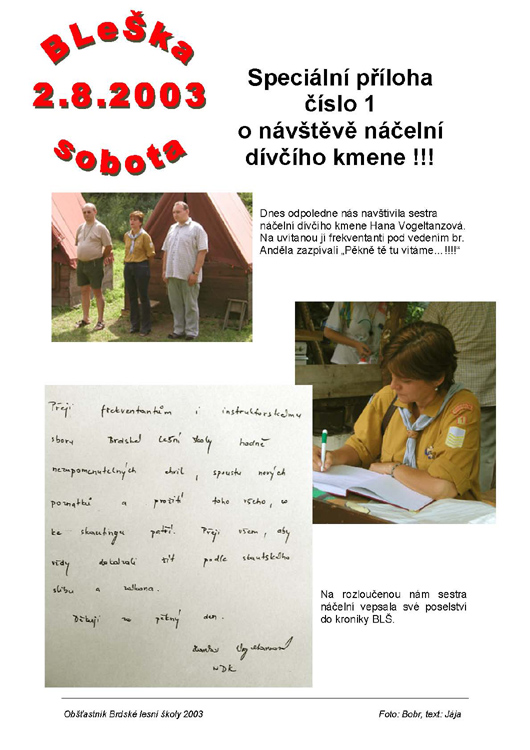 BLeŠka
2.8.2003
sobota
Speciální příloha
číslo 1
o návštěvě náčelní
dívčího kmene !!!
Dnes odpoledne nás navštívila sestra
náčelní dívčího kmene Hana Vogeltanzová.
Na uvítanou jí frekventanti pod vedením br.
Anděla zazpívali „Pěkně tě tu vítáme…!!!!“
Přeji frekventantům i instruktorskému
sboru Brdské lesní školy hodně
nezapomenutelných chvil, spoustu nových
poznatků a prožití toho všeho, co
ke skautingu patří. Přeji všem, aby
vždy dokázali žít podle skautského
slibu a zákona.
Děkuji za pěkný den.
NDK
Na rozloučenou nám sestra
náčelní vepsala své poselství
do kroniky BLŠ.
Občastník Brdské lesní školy 2003
Foto: Bobr, text: Jája